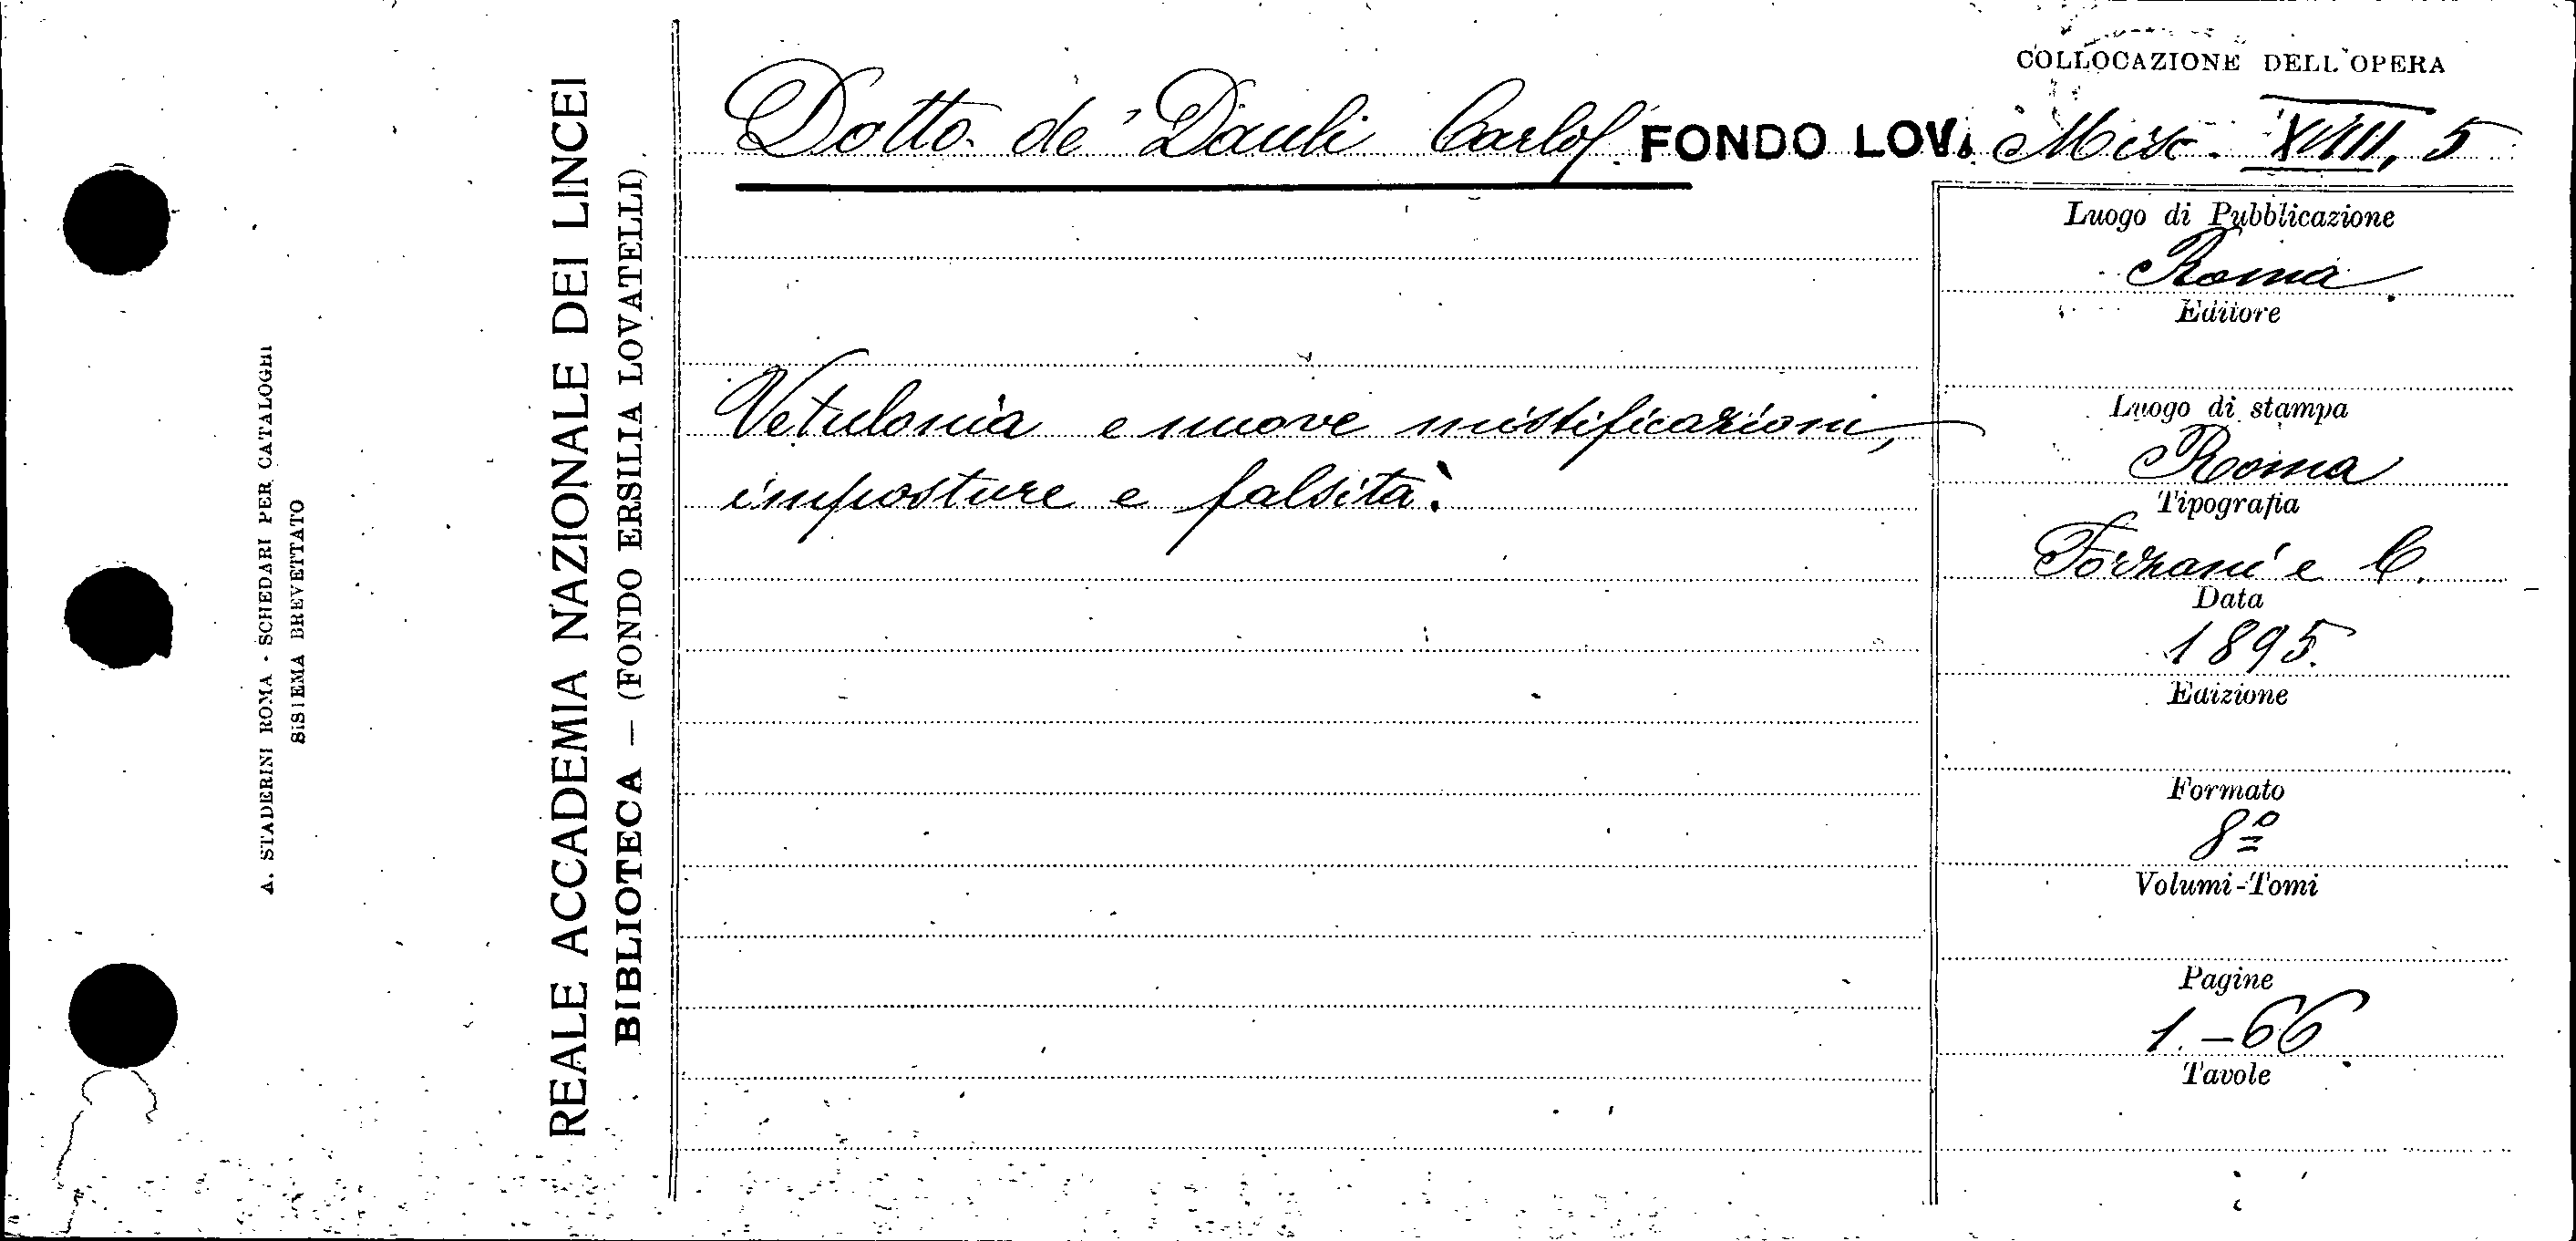 COLLOCAZIONE DELL'OPERA
Dotto de' Dauli Carlo
FONDO LOV. Misc. XVIII, 5
Vetulonia e nuove mistificazioni,
imposture e falsità.
Luogo di Pubblicazione
Roma
Editore
Luogo di stampa
Roma
Tipografia
Forzani e C.
Data
1895.
Edizione
Formato
8º
Volumi-Tomi
Pagine
1.-66
Tavole
REALE ACCADEMIA NAZIONALE DEI LINCEI
BIBLIOTECA — (FONDO ERSILIA LOVATELLI)
A. STADERINI ROMA - SCHEDARI PER CATALOGHI
SISTEMA BREVETTATO